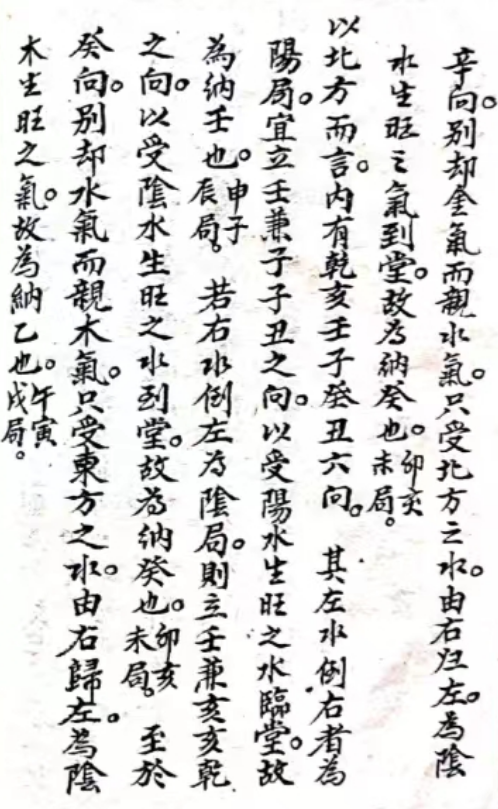 辛向。別却金氣而親水氣。只受北方之水。由右归左。為陰
水生旺之氣到堂。故為納癸也。卯亥未局。
以北方而言。內有乾亥壬子癸丑六向。其左水倒右者為
陽局。宜立壬兼子子丑之向。以受陽水生旺之水臨堂。故
為納壬也。申子辰局。若右水倒左為陰局。則立壬兼亥亥乾
之向。以受陰水生旺之水到堂。故為納癸也。卯亥未局。至於
癸向。別却水氣而親木氣。只受東方之水。由右歸左。為陰
木生旺之氣。故為納乙也。午寅戌局。